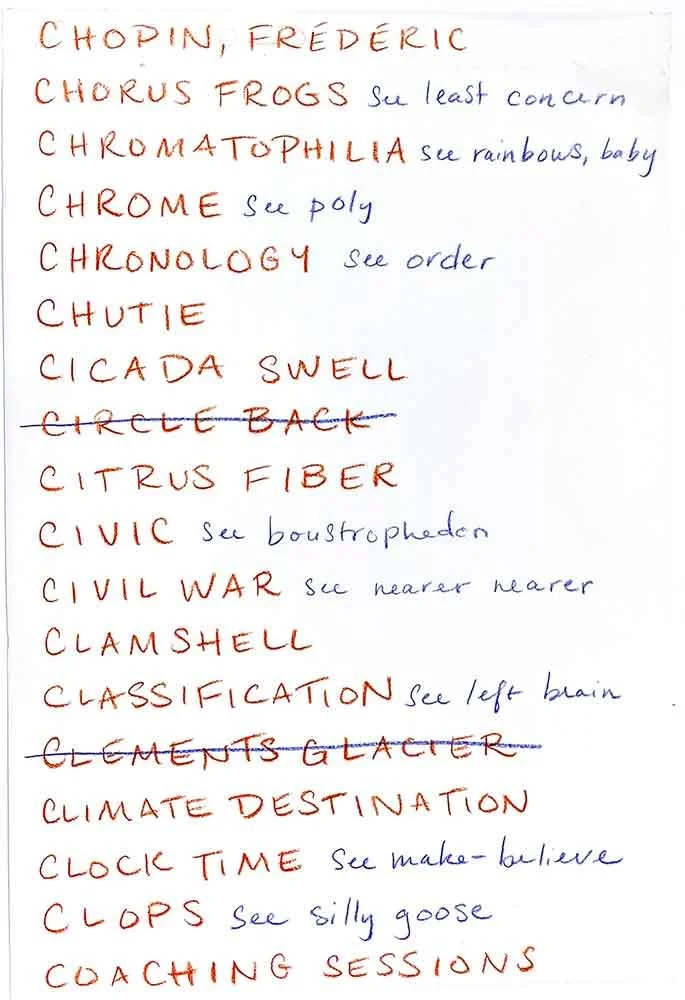 CHOPIN, FRÉDÉRIC
CHORUS FROGS see least concern
CHROMATOPHILIA see rainbows, baby
CHROME see poly
CHRONOLOGY see order
CHUTIE
CICADA SWELL
CIRCLE BACK
CITRUS FIBER
CIVIC see boustrophedon
CIVIL WAR see nearer nearer
CLAMSHELL
CLASSIFICATION see left brain
CLEMENTS GLACIER
CLIMATE DESTINATION
CLOCK TIME see make-believe
CLOPS see silly goose
COACHING SESSIONS